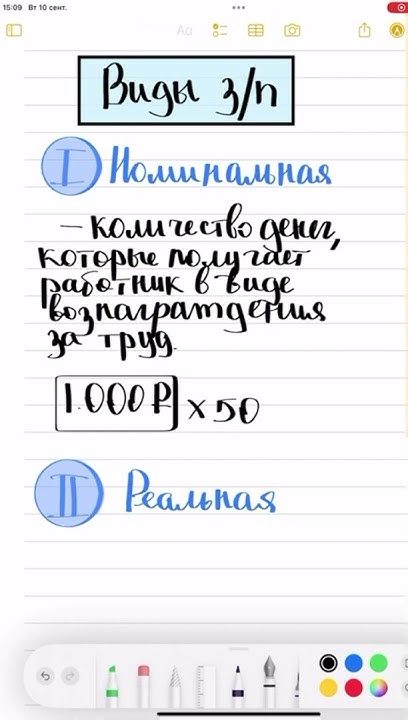 15:09 Вт 10 сент.
Aa
Виды з/п
I Номинальная
— количество денег,
которые получает
работник в виде
вознаграждения
за труд.
1.000₽ х 50
II Реальная